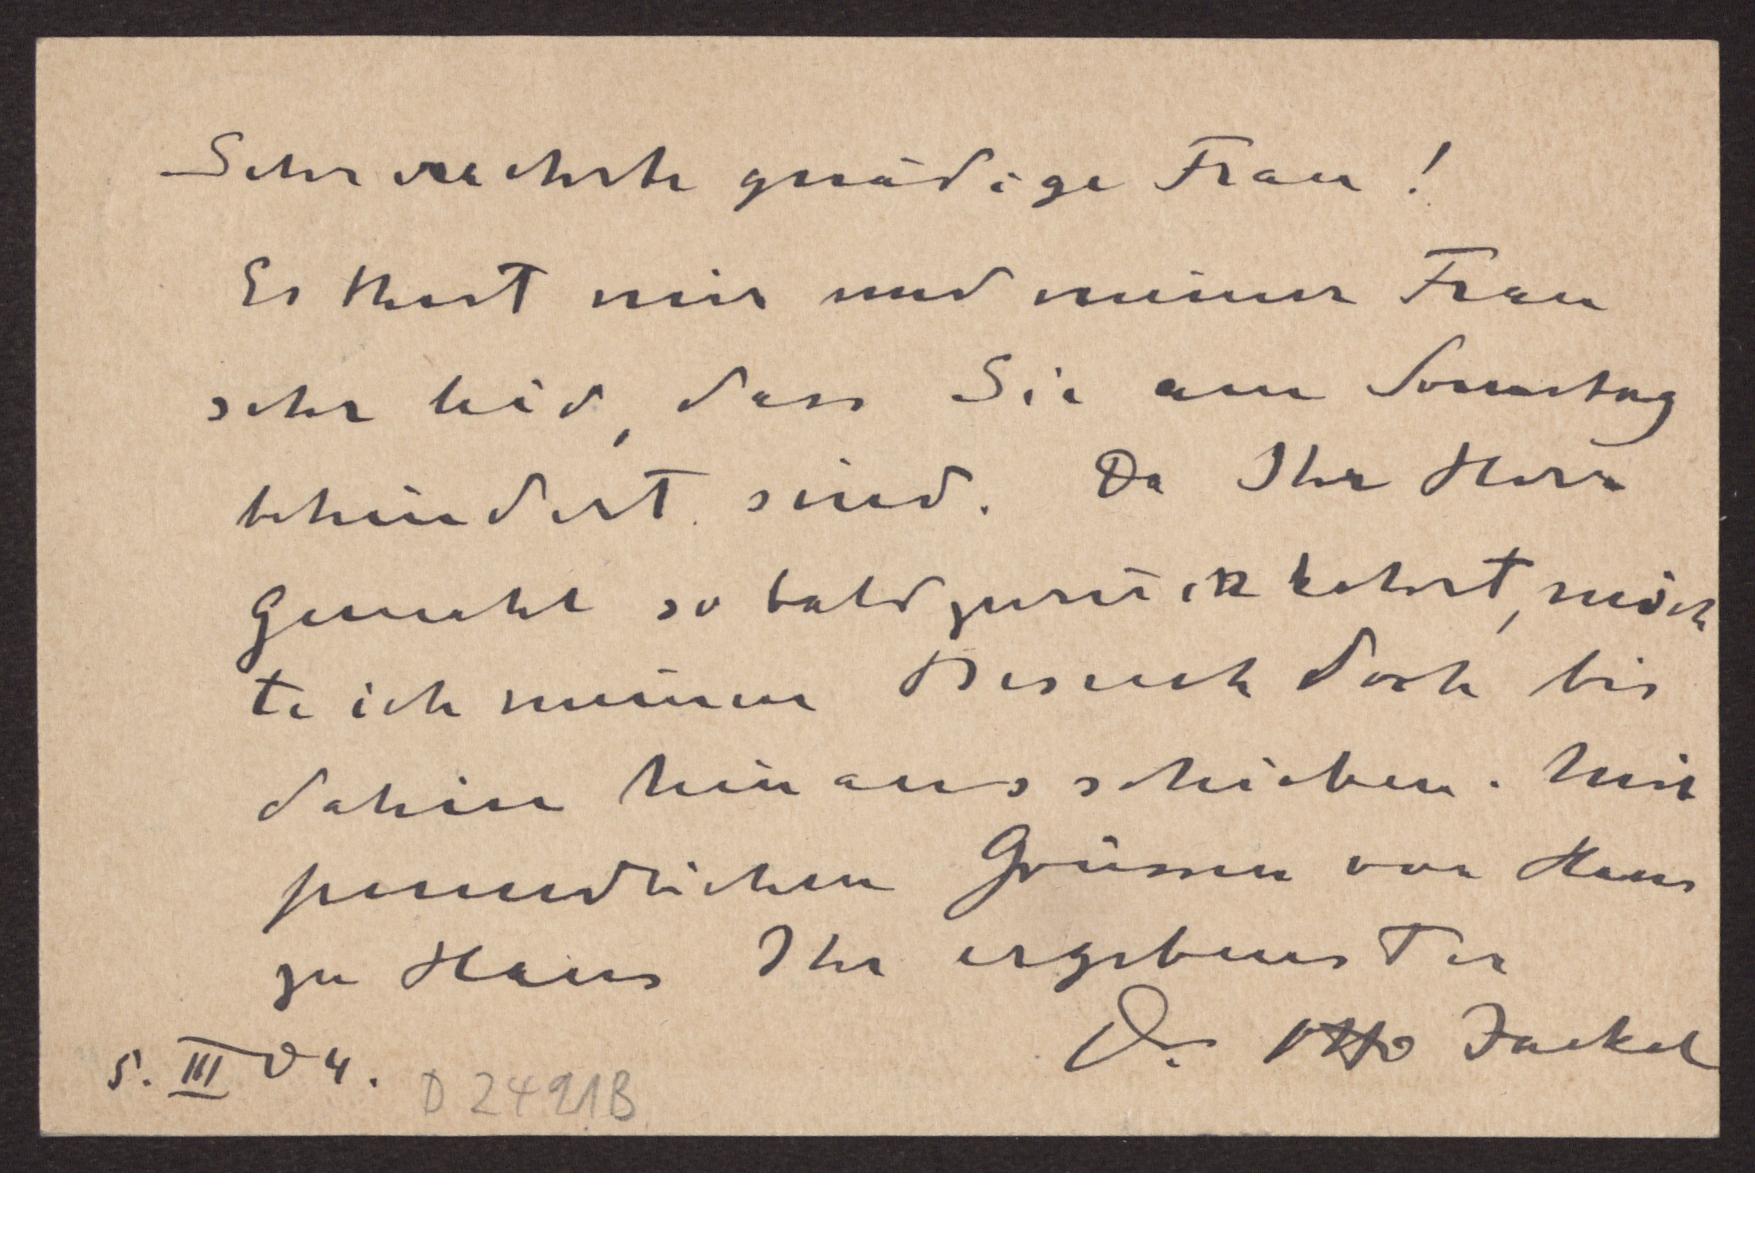 Sehr verehrte gnädige Frau!
Es thut mir und meiner Frau
sehr leid, dass Sie am Sonntag
behindert sind. Da Ihr Herr
Gemahl so bald zurückkehrt, möch
te ich meinen Besuch doch bis
dahin hinausschieben. Mit
freundlichen Grüssen von Haus
zu Haus Ihr ergebenster
Dr. Otto Jaekel
5. III 04.
D 2491B